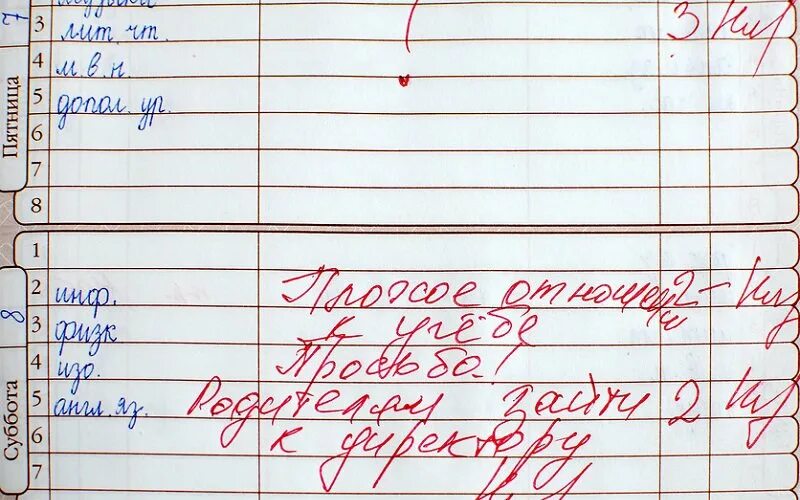 7
Пятница
3 лит. чт. 3
4 м. в. н.
5 допол. ур.
6
7
8
8
Суббота
1
2 инф. Плохое отношен 2-
3 физк к учёбе
4 изо. Просьба!
5 англ. яз. Родителям зайти 2
6 к директору
7